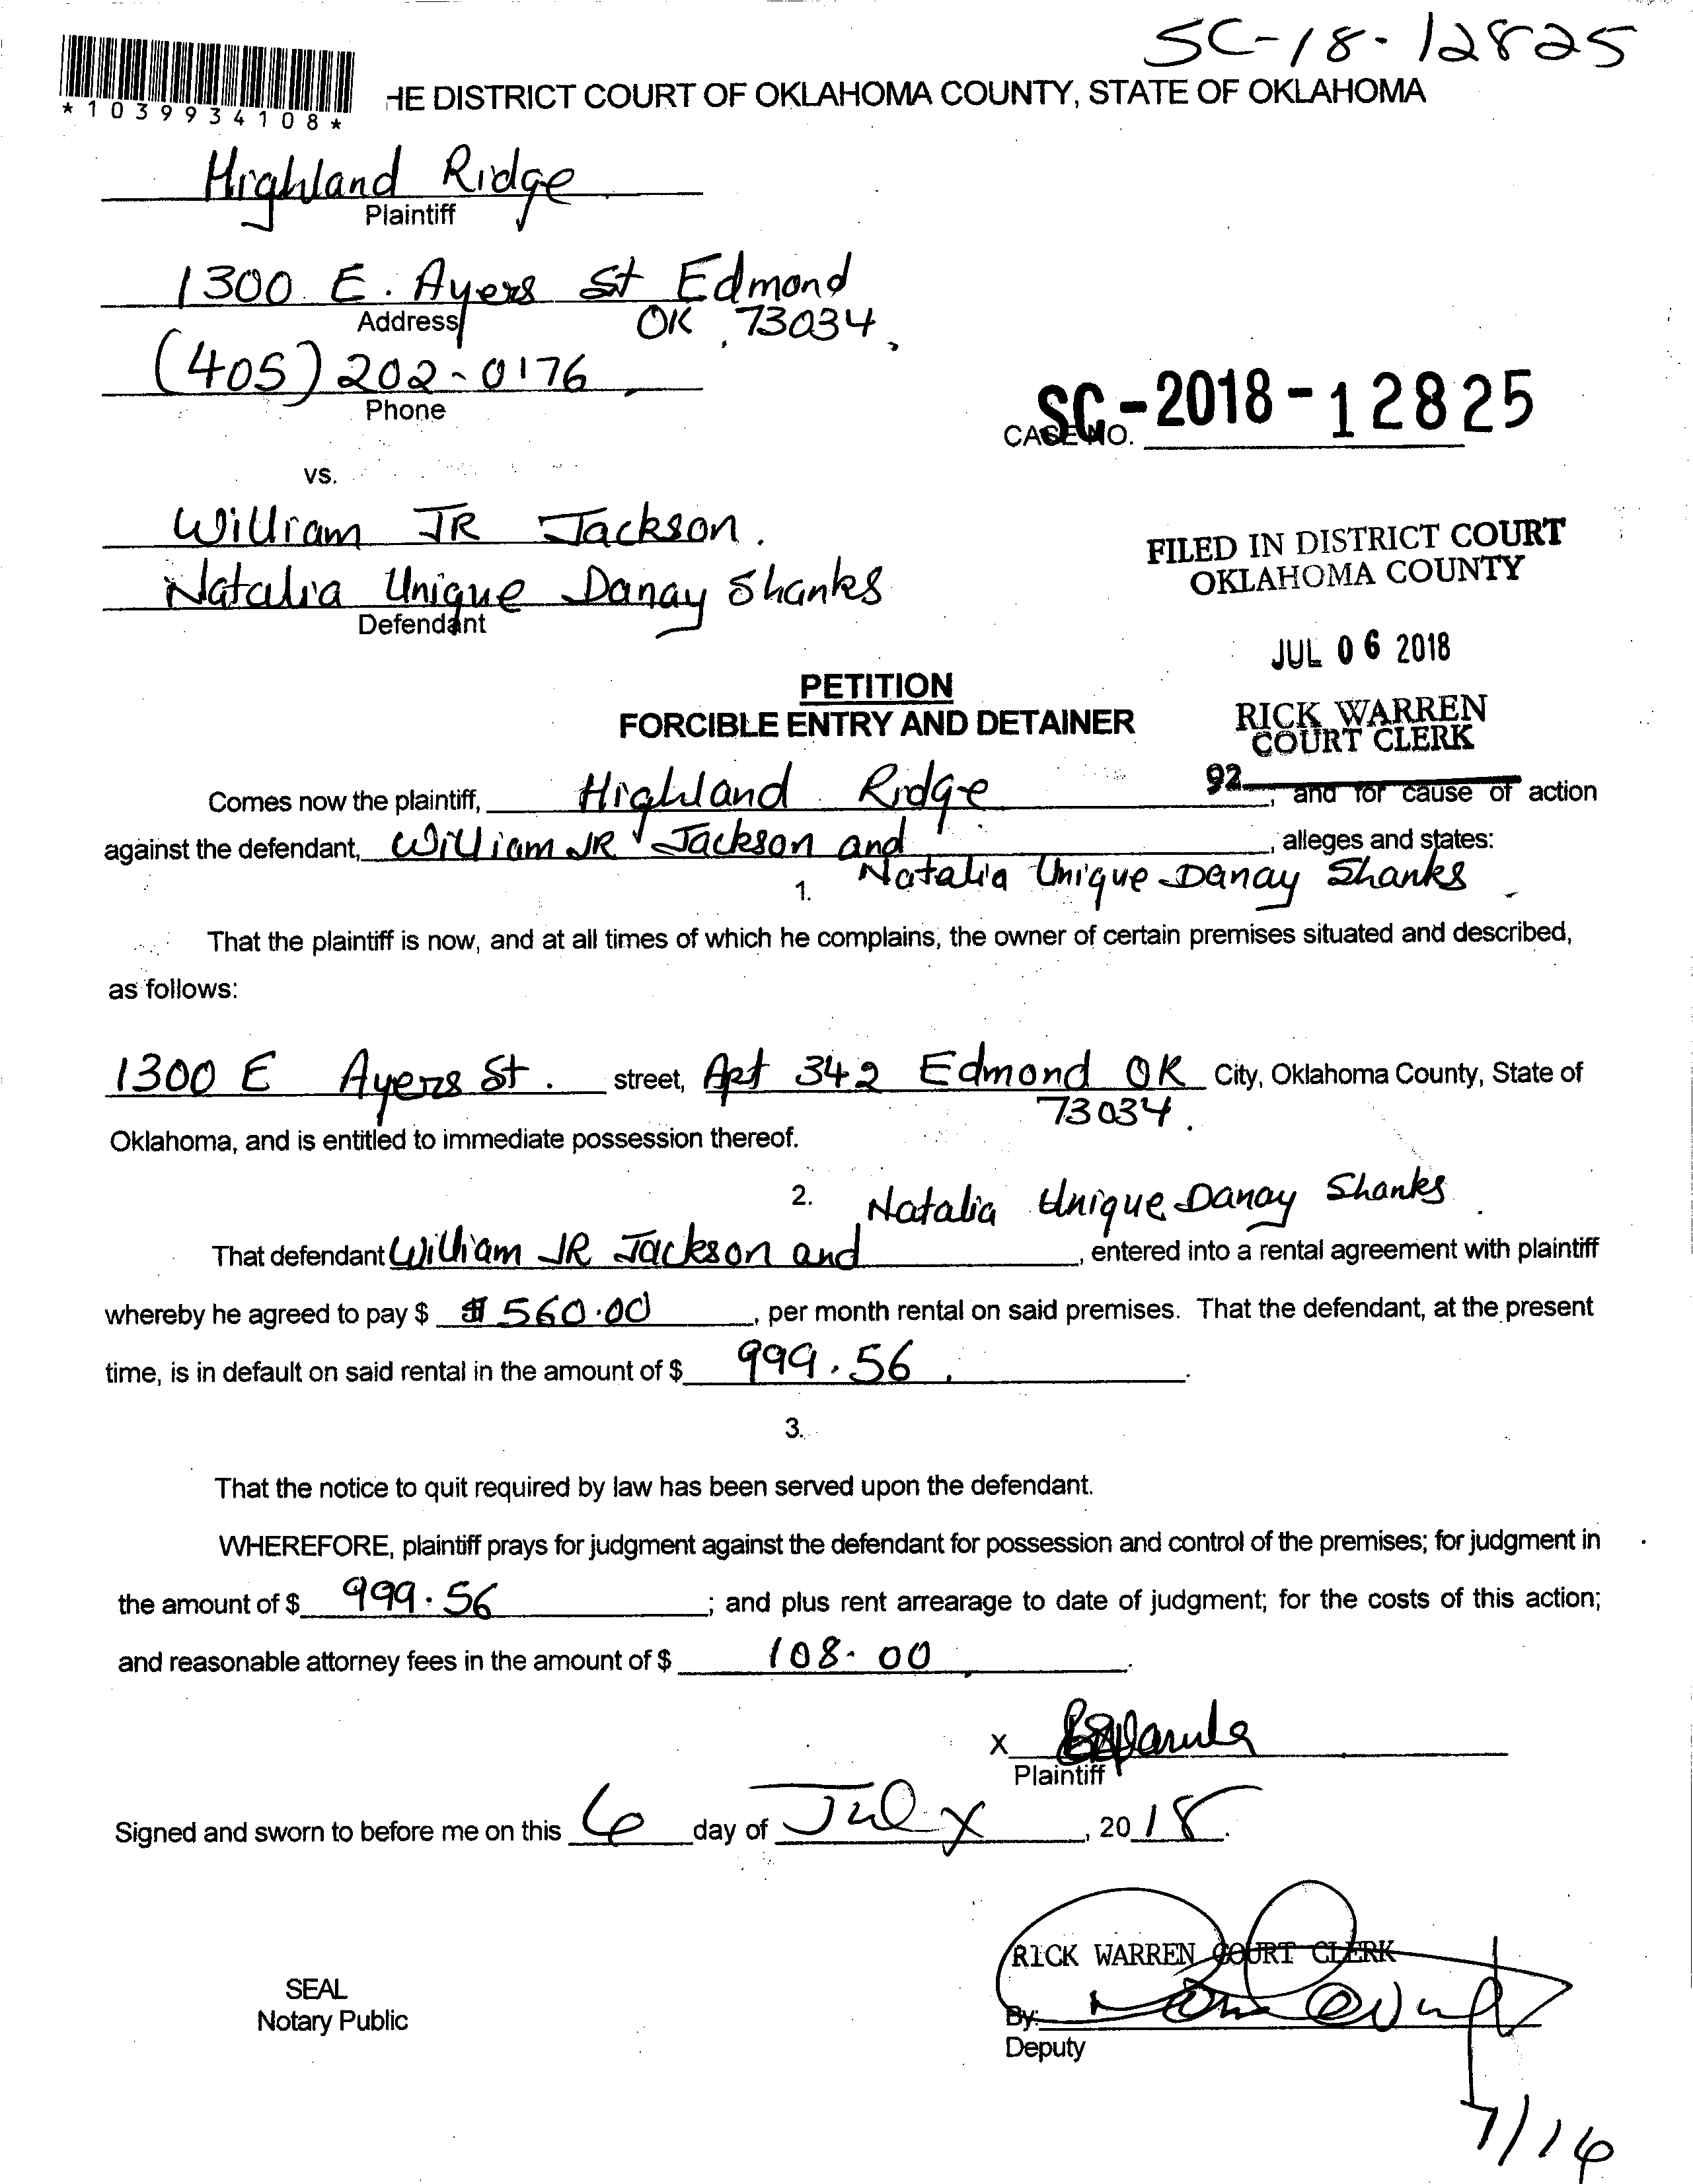 SC-18-12825
*1039934108*
HE DISTRICT COURT OF OKLAHOMA COUNTY, STATE OF OKLAHOMA
Highland Ridge
Plaintiff
1300 E. Ayers St Edmond
Address
OK, 73034.
(405) 202-0176
Phone
SC-2018-12825
CASE NO.
vs.
William JR Jackson.
Natalia Unique Danay Shanks
Defendant
FILED IN DISTRICT COURT
OKLAHOMA COUNTY
JUL 06 2018
PETITION
FORCIBLE ENTRY AND DETAINER
RICK WARREN
COURT CLERK
92
Comes now the plaintiff, Highland Ridge, and for cause of action
against the defendant, William JR Jackson and, alleges and states:
Natalia Unique Danay Shanks
1.
That the plaintiff is now, and at all times of which he complains, the owner of certain premises situated and described,
as follows:
1300 E Ayers St. street, Apt 342 Edmond OK City, Oklahoma County, State of
73034.
Oklahoma, and is entitled to immediate possession thereof.
2.
Natalia Unique Danay Shanks.
That defendant William JR Jackson and, entered into a rental agreement with plaintiff
whereby he agreed to pay $ $560.00, per month rental on said premises. That the defendant, at the present
time, is in default on said rental in the amount of $ 999.56.
3.
That the notice to quit required by law has been served upon the defendant.
WHEREFORE, plaintiff prays for judgment against the defendant for possession and control of the premises; for judgment in
the amount of $ 999.56; and plus rent arrearage to date of judgment; for the costs of this action;
and reasonable attorney fees in the amount of $ 108.00.
X
Plaintiff
Signed and sworn to before me on this 6 day of July, 2018.
RICK WARREN COURT CLERK
SEAL
Notary Public
By:
Deputy
7/16